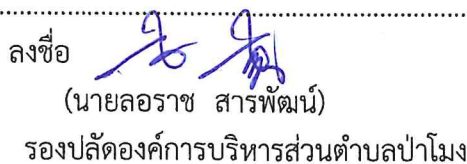 ลงชื่อ
(นายลอราช สารพัฒน์)
รองปลัดองค์การบริหารส่วนตำบลป่าโมง